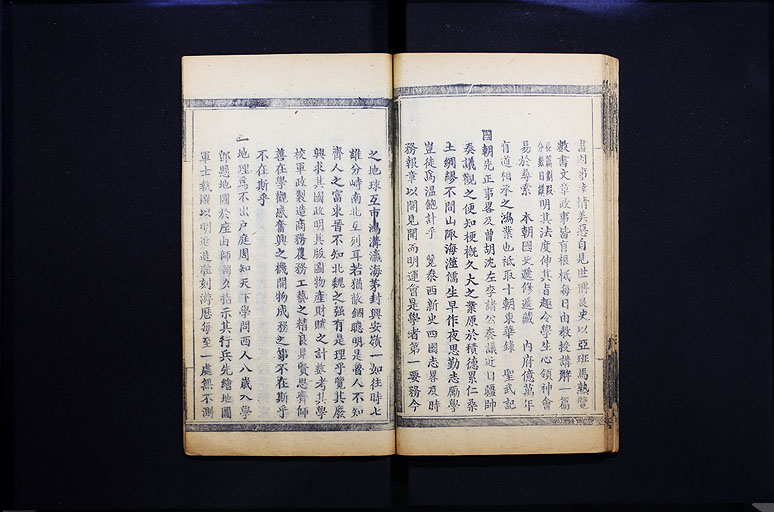 書因事幸情美惡自見世際良史以亞班馬熟覽
數書文章政事皆有根柢每日由教授講解一篇
長篇劃段分數日講明其法度伸其旨趣令學生心領神會
易於尋索　本朝國史遞修遞藏　內府億萬年
有道相承之鴻業也祗取十朝東華錄　聖武記
國朝先正事畧及曾胡沈左李諸公奏議近日疆帥
奏議觀之便知梗概久大之業原於積德累仁桑
土綢繆不問山陬海澨儒生早作夜思勤志厲學
豈徒爲溫飽計乎　覽泰西新史四國志畧及時
務報章以開見聞而明運會是學者第一要務今
之地球互市鴻溝瀛海茅封興安嶺一如往時七
雄分峙南北互列耳若猶故錮聰明是魯人不知
齊人之富東晉不知北魏之強有是理乎覽其廢
興求其國政明其版圖物產財賦之計數考其學
校軍政製造商務農務工藝之精良昇賢思齊師
善在學觀感奮興之機開物成務之第不在斯乎
不在斯乎
一地理爲不出戶庭周知天下學問西人八歲入學
卽懸地圖於座由師朝夕指示其行兵先繪地圖
軍士執圖以明進退准刻濟歷每至一處無不測